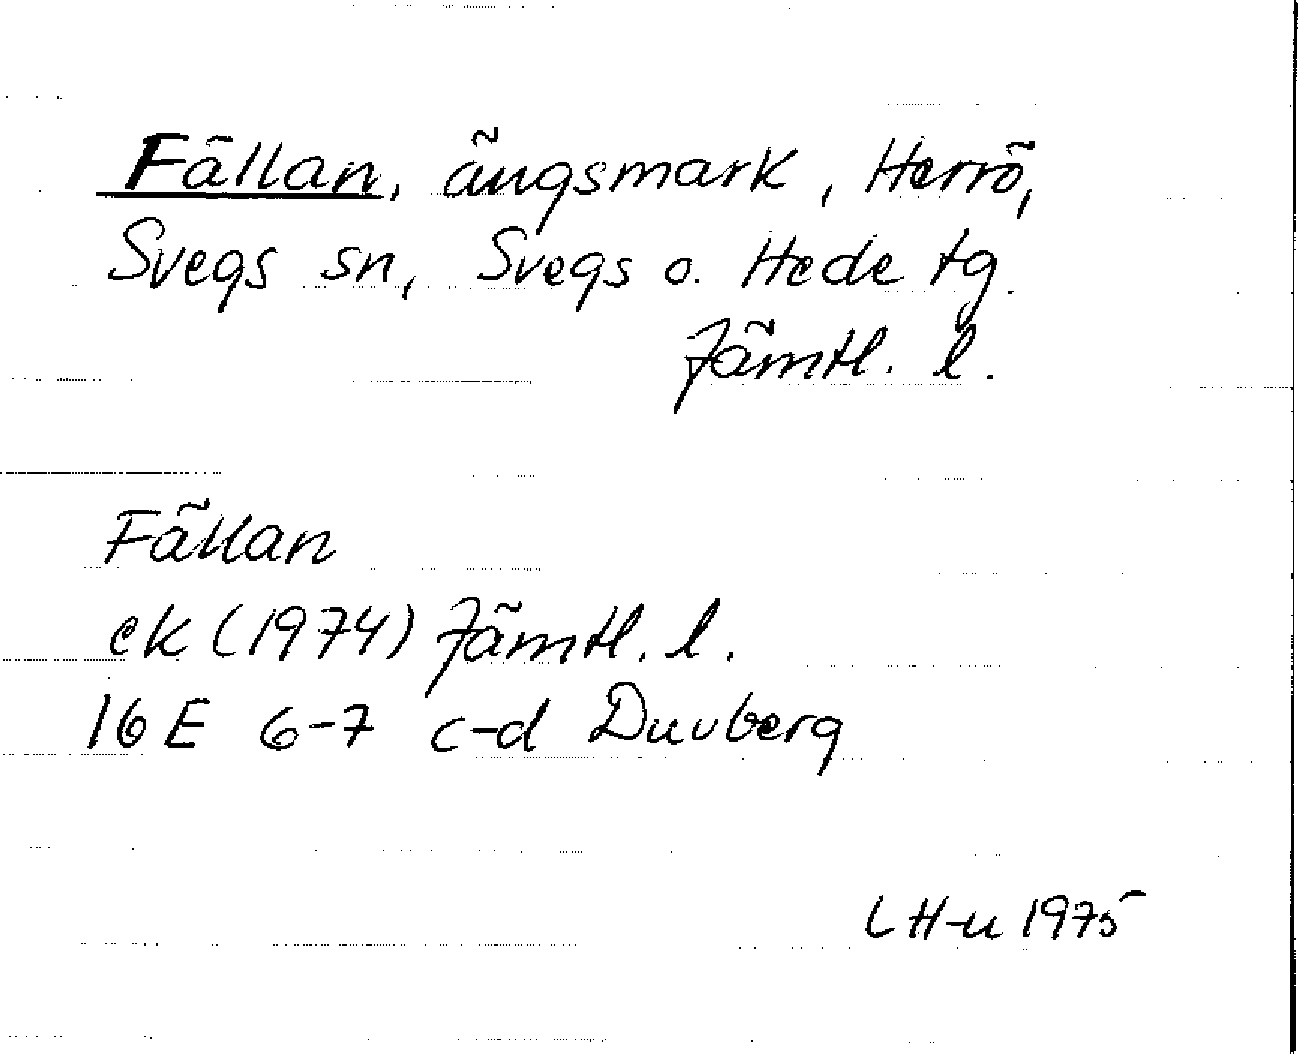 Fällan, ängsmark, Herrö,
Svegs sn, Svegs o. Hede tg.
Jämtl. l.
Fällan
ek (1974) Jämtl. l.
16 E 6-7 c-d Duvberg
LH-u 1975